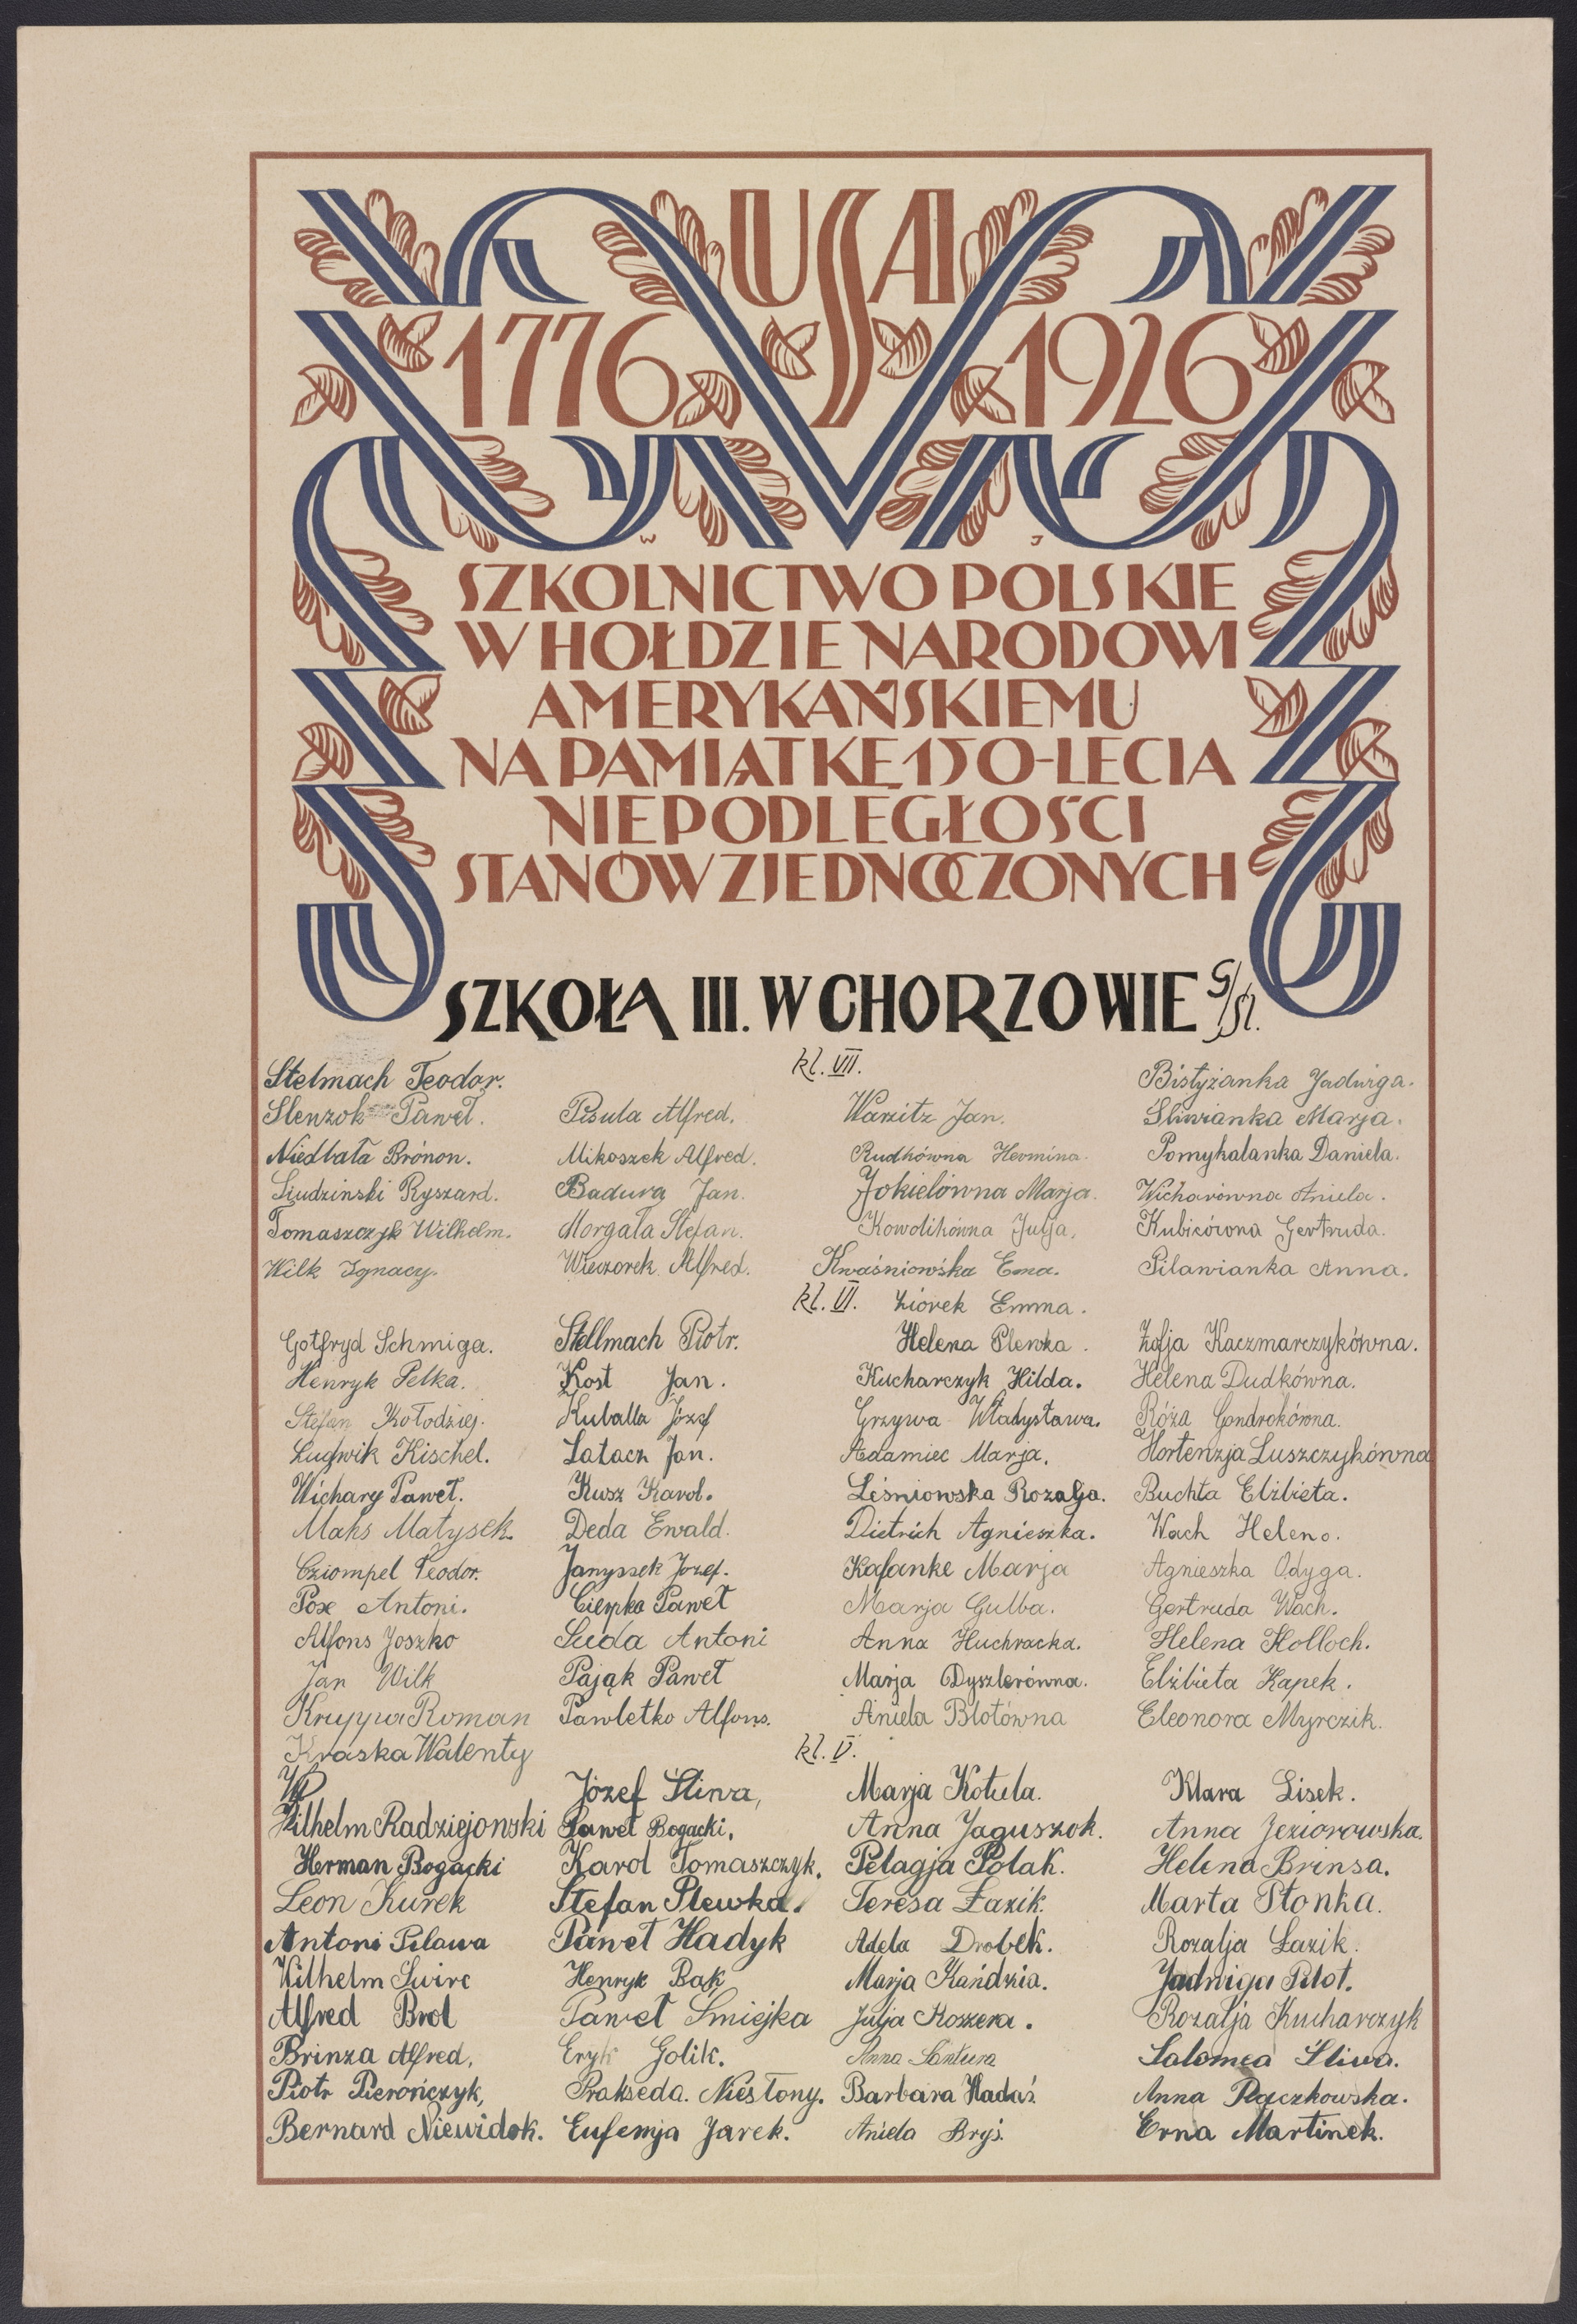 USA
1776 1926
W J
SZKOLNICTWO POLSKIE
W HOŁDZIE NARODOWI
AMERYKAŃSKIEMU
NA PAMIĄTKĘ 150-LECIA
NIEPODLEGŁOŚCI
STANÓW ZJEDNOCZONYCH
SZKOŁA III. W CHORZOWIE G/Śl.
kl. VII.
Stelmach Teodor. Bistyżanka Jadwiga.
Slenzok Paweł. Pisula Alfred. Warzitz Jan. Śliwianka Marja.
Niedbała Brónon. Mikoszek Alfred. Rudkówna Hermina. Pomykalanka Daniela.
Siudzinski Ryszard. Badura Jan. Jokielówna Marja. Wicharówna Aniela.
Tomaszczyk Wilhelm. Morgała Stefan. Kowolikówna Julja. Kubicówna Gertruda.
Wilk Ignacy. Wieczorek Alfred. Kwaśniowśka Ema. Pilawianka Anna.
kl. VI. Żiorek Emma.
Gotfryd Schmiga. Stellmach Piotr. Helena Plewka. Zofja Kaczmarczykówna.
Henryk Pelka. Kost Jan. Kucharczyk Hilda. Helena Dudkówna.
Stefan Kołodziej. Kuballa Józef Grzywa Władysława. Róża Gondrokówna.
Ludwik Kischel. Latacz Jan. Adamiec Marja. Hortenzja Luszczykówna
Wichary Paweł. Kusz Karol. Leśniowska Rozalja. Buchta Elżbieta.
Maks Matysek. Deda Ewald. Dietrich Agnieszka. Wach Helena.
Cziompel Teodor. Janyssek Jozef. Kafanke Marja Agnieszka Odyga.
Pox Antoni. Cierpka Paweł Marja Gulba. Gertruda Wach.
Alfons Joszko Suda Antoni Anna Huchracka. Helena Kolloch.
Jan Wilk Pająk Paweł Marja Dyszlerówna. Elżbieta Kapek.
Kruppa Roman Pawletko Alfons. Aniela Blotówna Eleonora Myrczik.
Kraska Walenty
kl. V.
Józef Śliwa, Marja Kotula. Klara Lisek.
Wilhelm Radziejowski Paweł Bogacki. Anna Jaguszok. Anna Jeziorowska.
Herman Bogacki Karol Tomaszczyk. Pelagja Polak. Helena Brinsa.
Leon Kurek Stefan Plewka. Teresa Łazik. Marta Płonka.
Antoni Pilawa Paweł Hadyk Adela Drobek. Rozalja Łazik.
Wilhelm Swirc Henryk Bąk Marja Kańdzia. Jadwiga Pilot.
Alfred Brol Paweł Smiejka Julja Koszera. Rozalja Kucharczyk
Brinza Alfred, Eryk Golik. Anna Santura Salomea Śliwa.
Piotr Pierończyk, Prakseda Niestony. Barbara Hadaś. Anna Pączkowska.
Bernard Niewidok. Eufemja Jarek. Aniela Bryś. Erna Martinek.